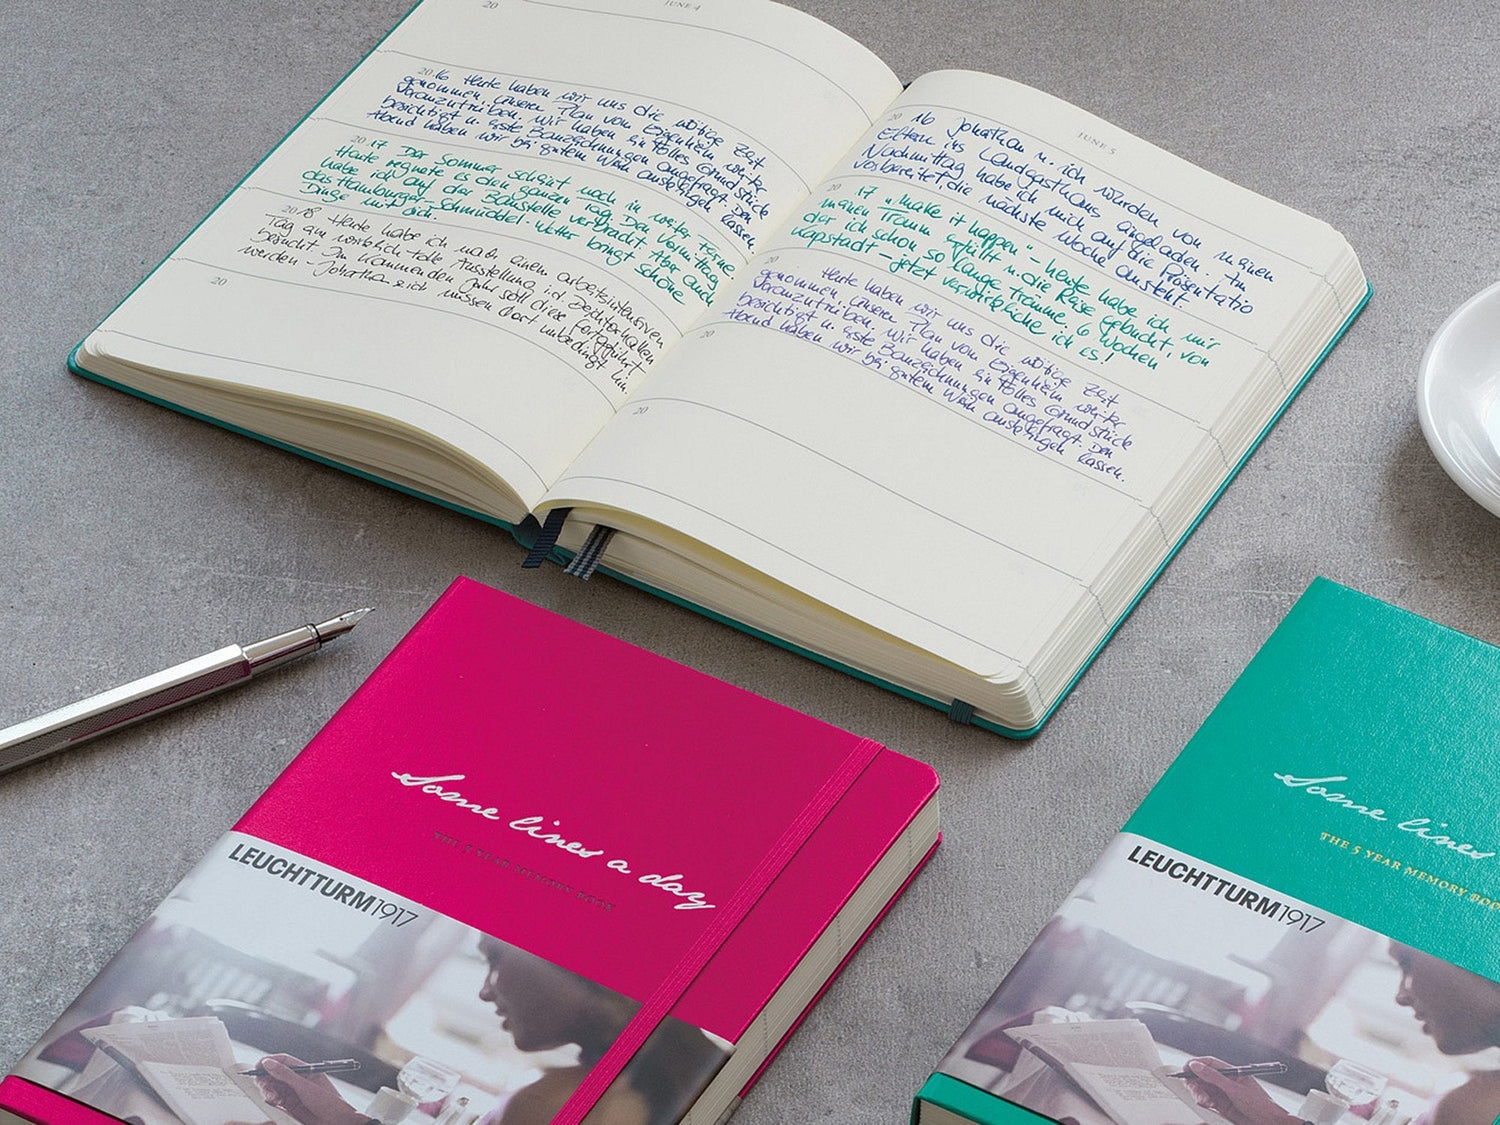 20
JUNE 4
20 16 Heute haben wir uns die nötige Zeit
genommen, unseren Plan vom Eigenheim weiter
voranzutreiben. Wir haben ein tolles Grundstück
besichtigt u. erste Bauzeichnungen angefragt. Den
Abend haben wir bei gutem Wein ausklingen lassen.
20 17 Der Sommer scheint noch in weiter Ferne.
Heute regnete es den ganzen Tag. Den Vormittag
habe ich auf der Baustelle verbracht. Aber auch
das Hamburger-Schmuddel-Wetter bringt schöne
Dinge mit sich.
20 18 Heute habe ich nach einem arbeitsintensiven
Tag die wirklich tolle Ausstellung i.d. Deichtorhallen
besucht. Im kommenden Jahr soll diese fortgeführt
werden - Jonathan & ich müssen dort unbedingt hin.
20
JUNE 5
20 16 Jonathan u. ich wurden von meinen
Eltern ins Landgasthaus eingeladen. Am
Nachmittag habe ich mich auf die Präsentatio
vorbereitet, die nächste Woche ansteht.
20 17 "make it happen" - heute habe ich mir
meinen Traum erfüllt u. die Reise gebucht, von
der ich schon so lange träume. 6 Wochen
Kapstadt - jetzt verwirkliche ich es!
20 Heute haben wir uns die nötige Zeit
genommen, unseren Plan vom Eigenheim weiter
voranzutreiben. Wir haben ein tolles Grundstück
besichtigt u. erste Bauzeichnungen angefragt. Den
Abend haben wir bei gutem Wein ausklingen lassen.
20
20
Some lines a day
THE 5 YEAR MEMORY BOOK
LEUCHTTURM1917
Some lines
THE 5 YEAR MEMORY BOO
LEUCHTTURM1917